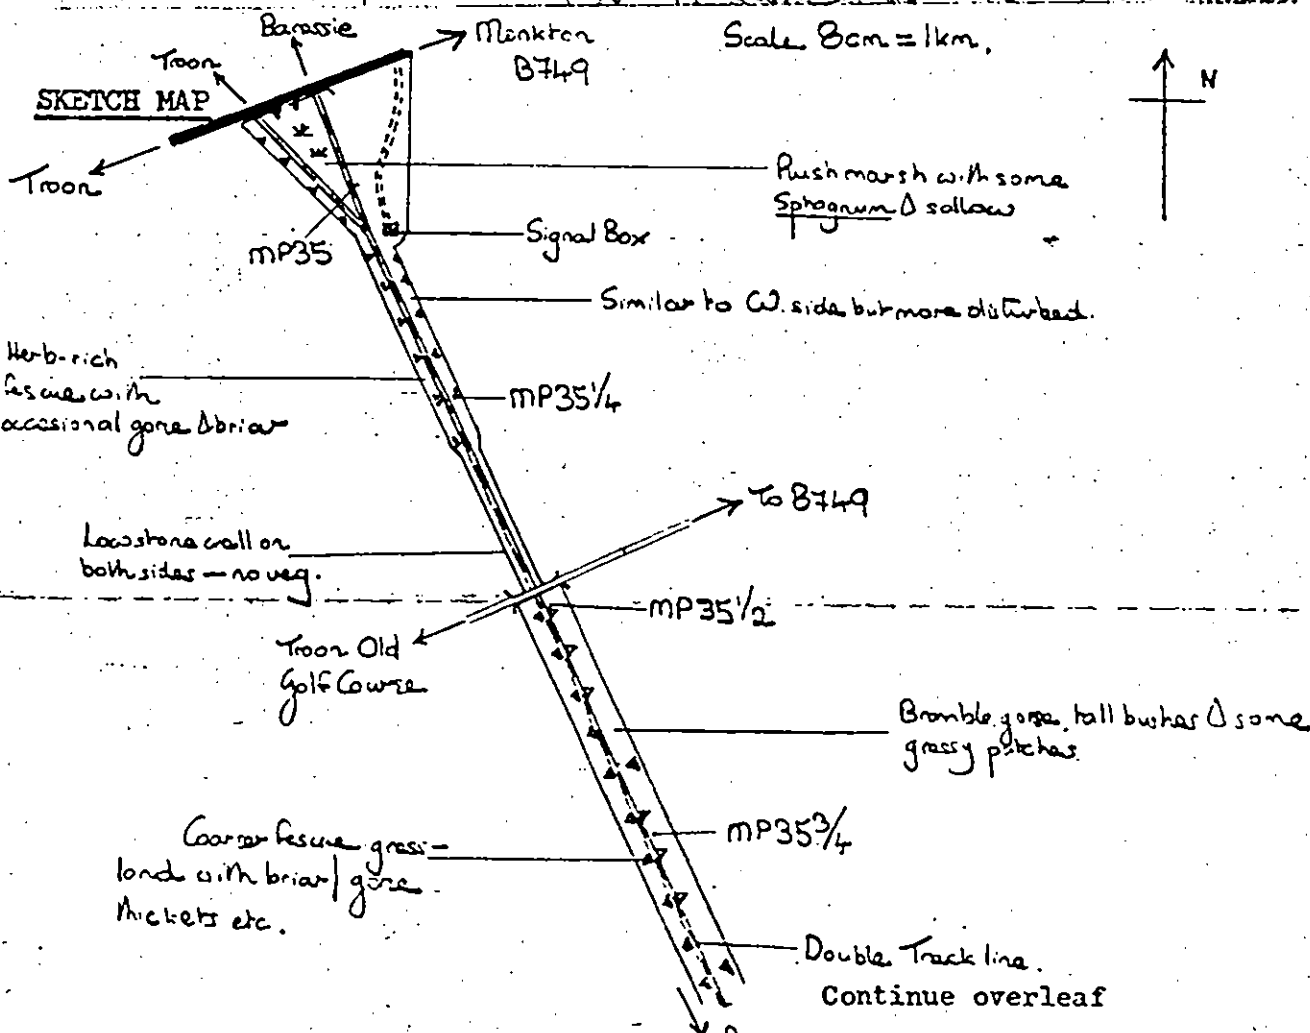 Barassie
Monkton
B749
Scale 8cm = 1km.
Troon
N
SKETCH MAP
Troon
Rush marsh with some
Sphagnum & sallow
Signal Box
MP35
Similar to W. side but more disturbed.
Herb-rich
fescue with
occasional gorse & briar
MP35¼
To B749
Low stone wall on
both sides - no veg.
MP35½
Troon Old
Golf Course
Bramble, gorse, tall bushes & some
grassy patches.
MP35¾
Coarser fescue grass-
land with briar/gorse
thickets etc.
Double Track line.
Continue overleaf